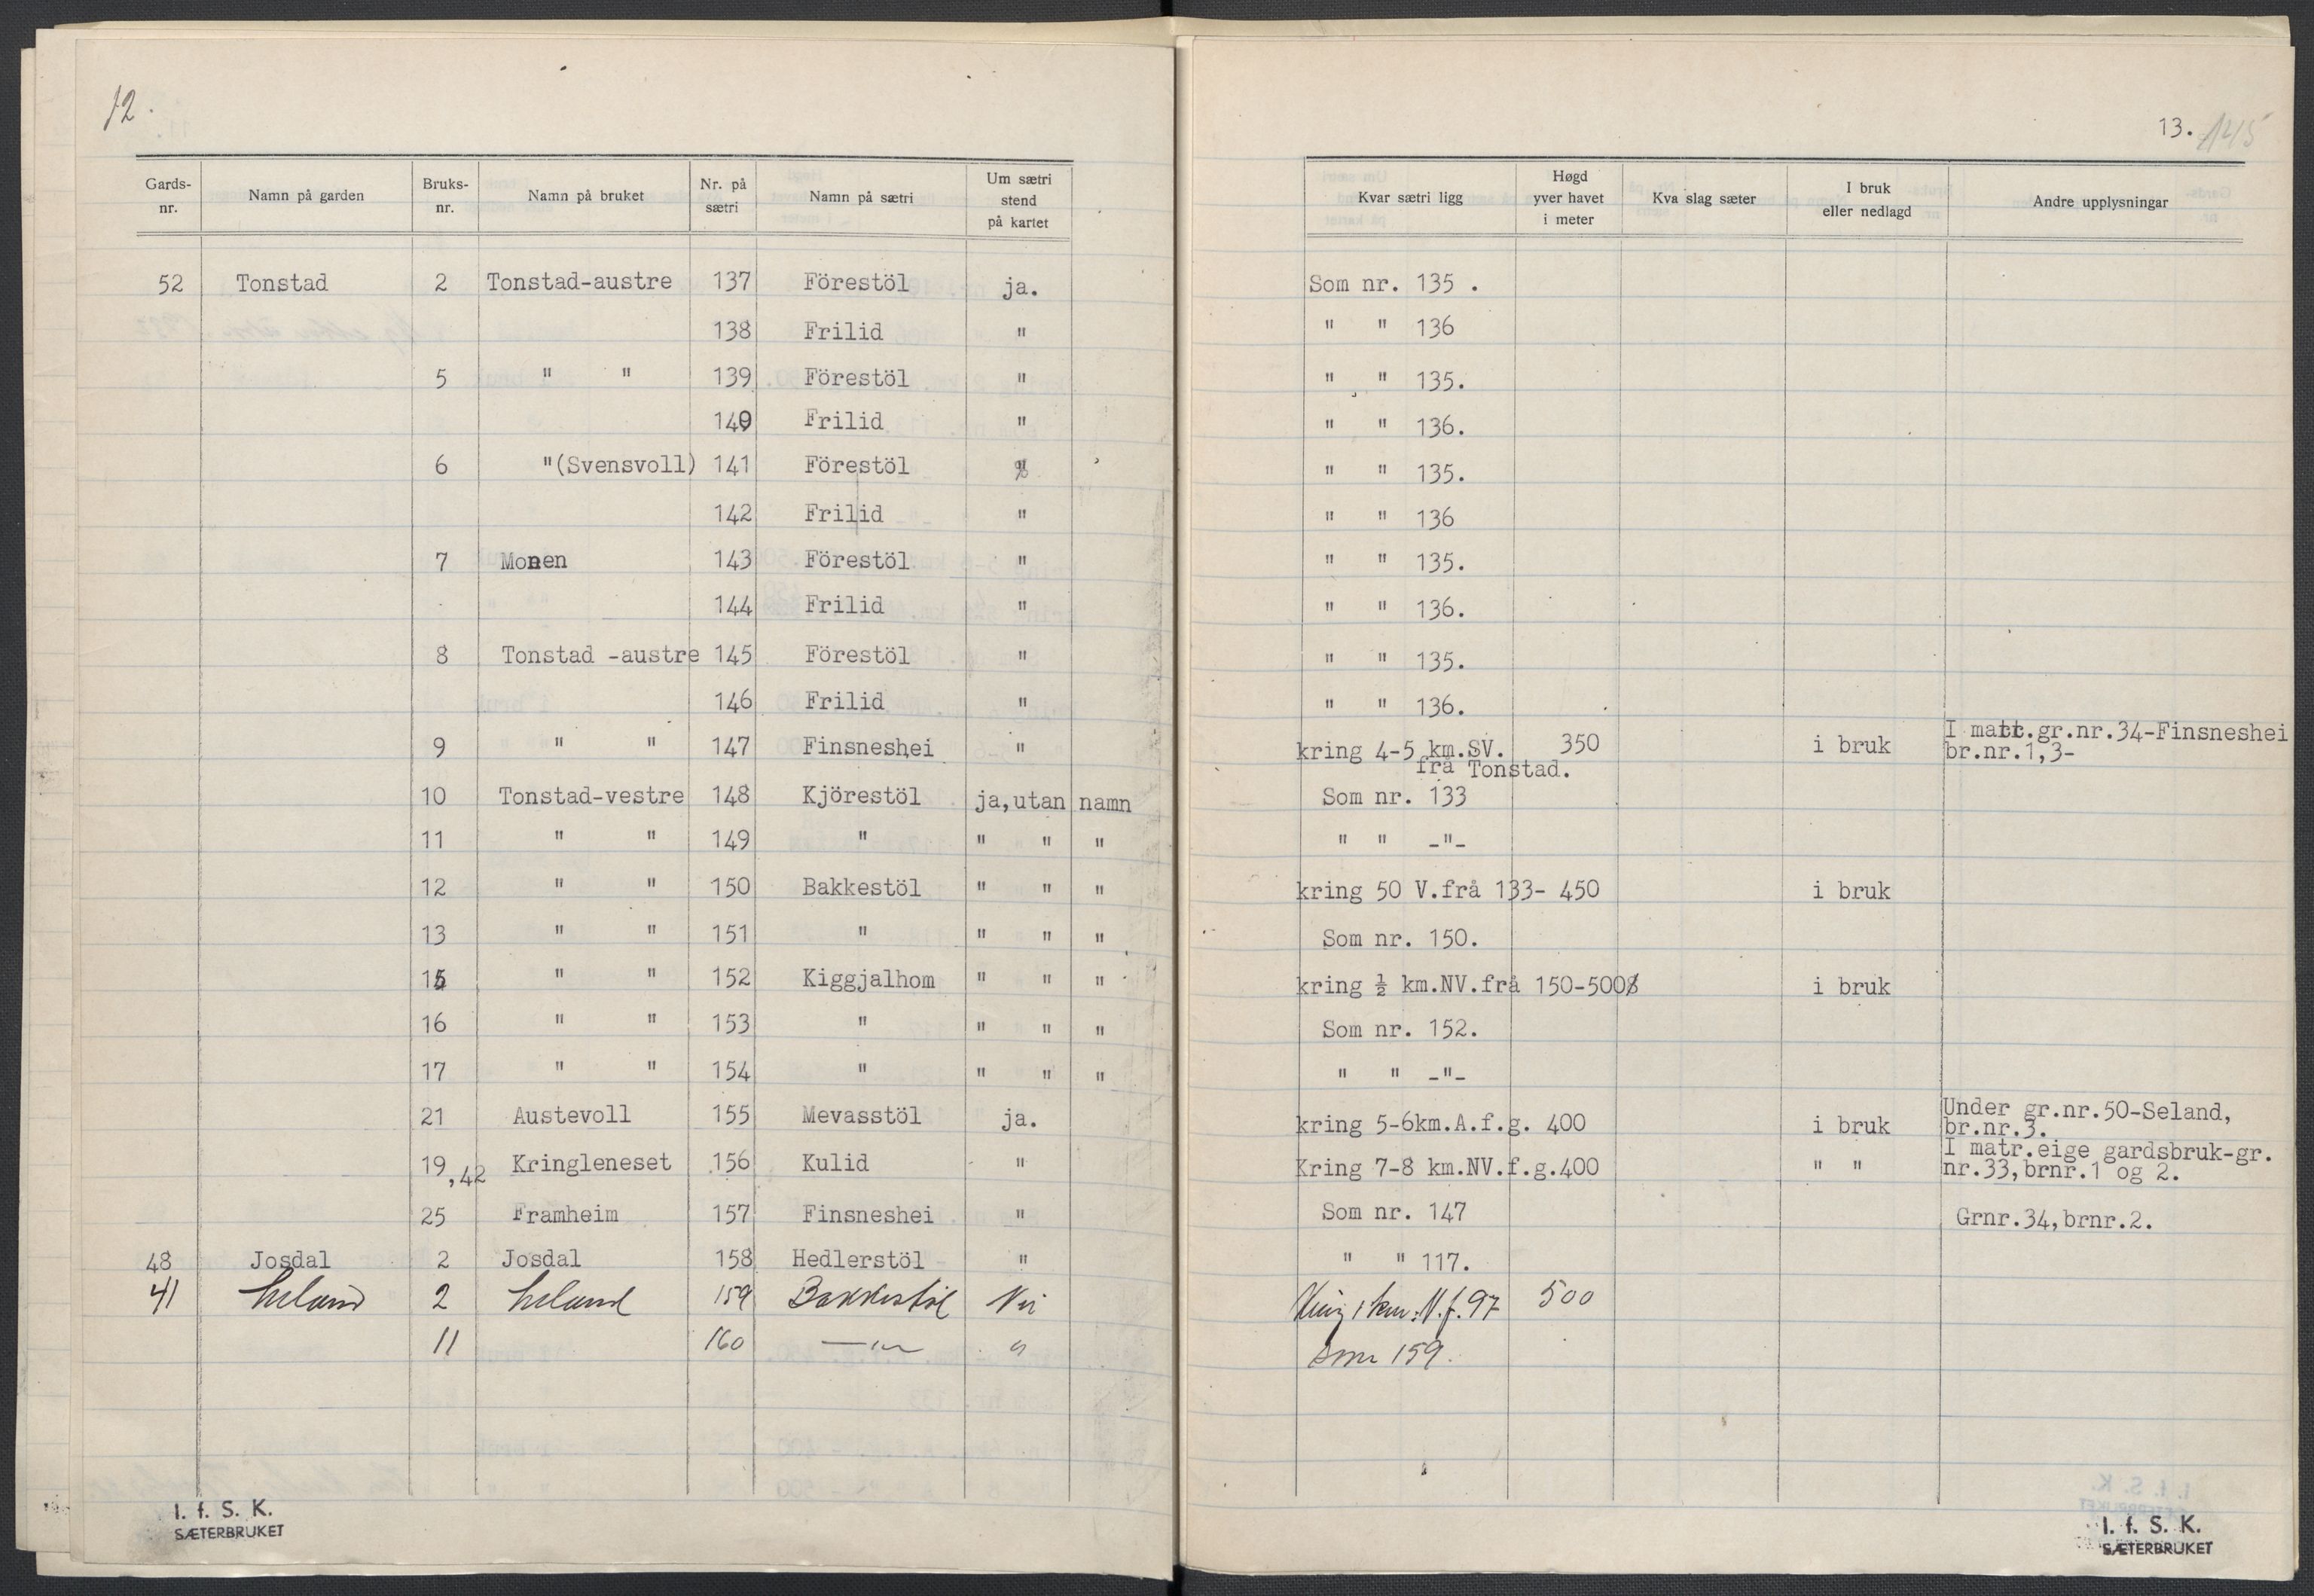 12.
Gards-nr. Namn på garden Bruks-nr. Namn på bruket Nr. på sætri Namn på sætri Um sætri stend på kartet
52 Tonstad 2 Tonstad-austre 137 Förestöl ja.
138 Frilid "
5 " " 139 Förestöl "
140 Frilid "
6 "(Svensvoll) 141 Förestöl "
142 Frilid "
7 Monen 143 Förestöl "
144 Frilid "
8 Tonstad -austre 145 Förestöl "
146 Frilid "
9 " " 147 Finsneshei "
10 Tonstad-vestre 148 Kjörestöl ja,utan namn
11 " " 149 " " " "
12 " " 150 Bakkestöl " " "
13 " " 151 " " " "
15 " " 152 Kiggjalhom " " "
16 " " 153 " " " "
17 " " 154 " " " "
21 Austevoll 155 Mevasstöl ja.
19,42 Kringleneset 156 Kulid "
25 Framheim 157 Finsneshei "
48 Josdal 2 Josdal 158 Hedlerstöl "
41 2 159 Bakkestöl Nei
11 160 —"— "
I. f. S. K.
SÆTERBRUKET
13. 145
Kvar sætri ligg Høgd yver havet i meter Kva slag sæter I bruk eller nedlagd Andre upplysningar
Som nr. 135 .
" " 136
" " 135.
" " 136.
" " 135.
" " 136
" " 135.
" " 136.
" " 135.
" " 136.
kring 4-5 km.SV. frå Tonstad. 350 i bruk I matr.gr.nr.34-Finsneshei br.nr.1,3-
Som nr. 133
" " -"-
kring 50 V.frå 133- 450 i bruk
Som nr. 150.
kring ½ km.NV.frå 150-500 i bruk
Som nr. 152.
" " -"-
kring 5-6km.A.f.g. 400 i bruk Under gr.nr.50-Seland, br.nr.3.
Kring 7-8 km.NV.f.g.400 " " I matr.eige gardsbruk-gr. nr.33,brnr.1 og 2.
Som nr. 147 Grnr.34,brnr.2.
" " 117.
Kring 1 km. V.f. 97 500
Som 159.
I. f. S. K.
SÆTERBRUKET